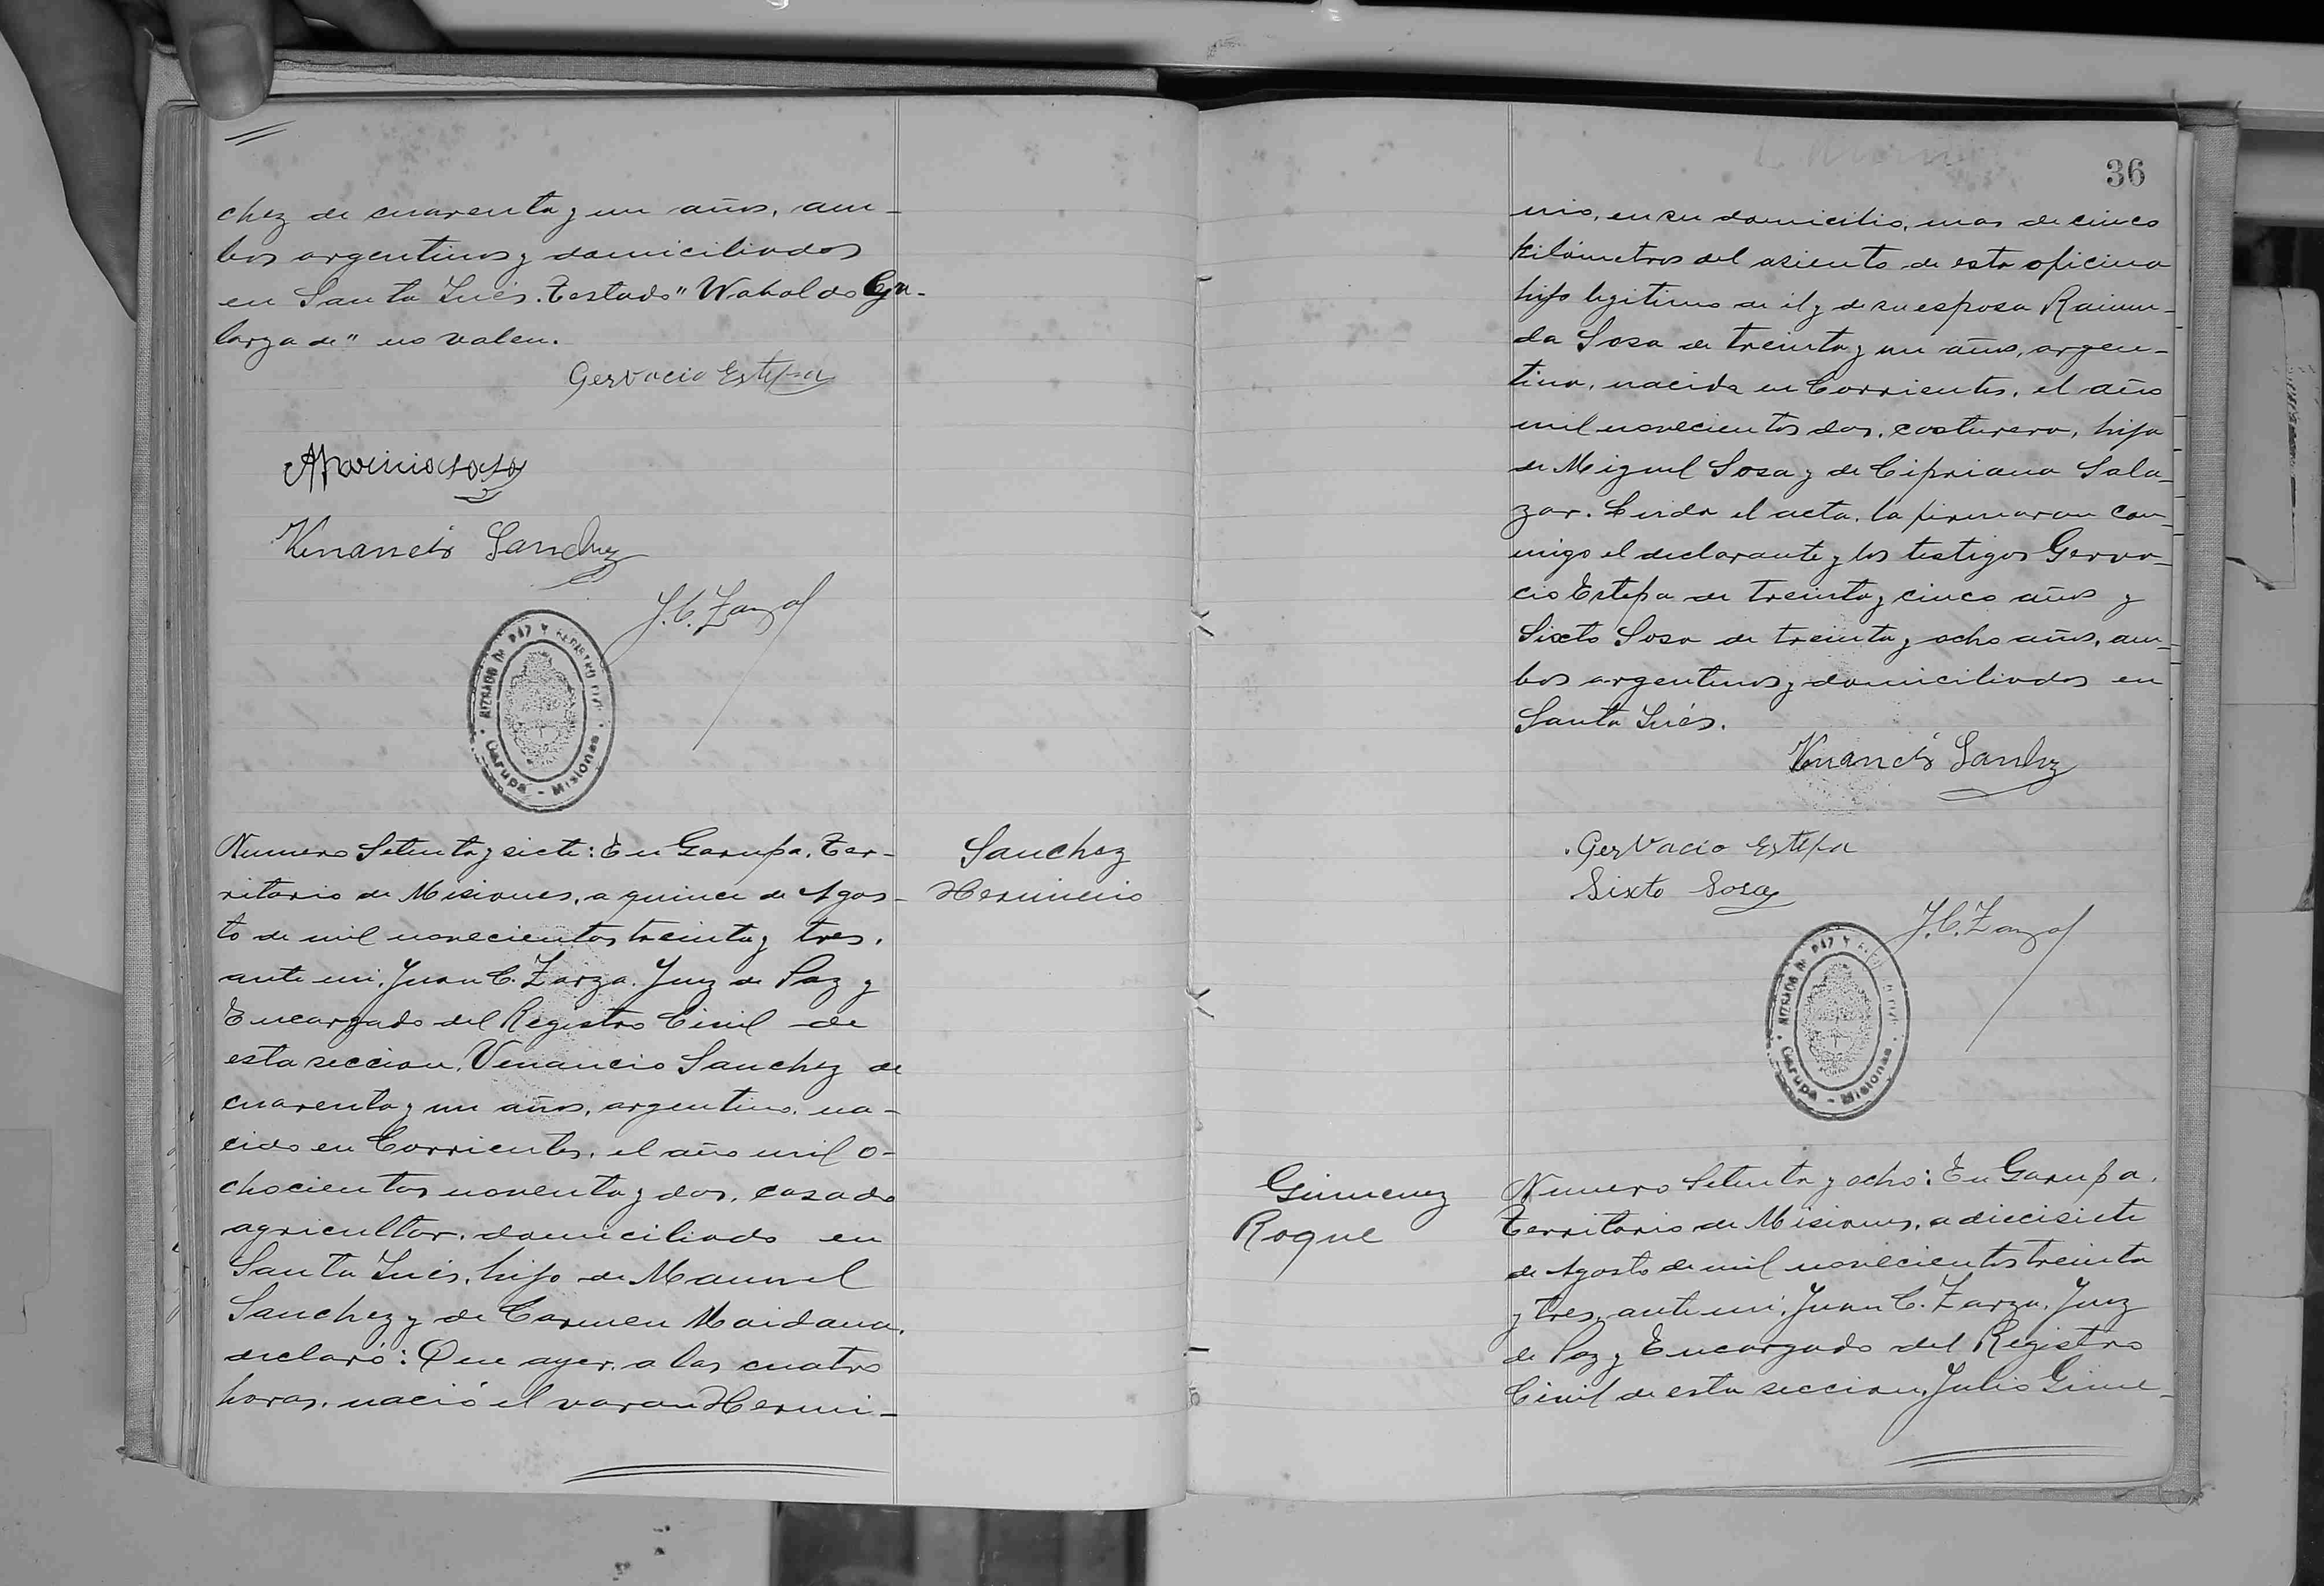 chez de cuarenta y un años, am-
bos argentinos y domiciliados
en Santa Inés. Testado "Waholdo Ga-
larza de" no valen.
Gervacio Estepa
Aparicio Sosa
Venancio Sanchez
J. C. Zarza
JUZGADO DE PAZ Y REGISTRO CIVIL
Garupá - Misiones
Numero Setenta y siete: En Garupa. Ter-
ritorio de Misiones, a quince de Agos-
to de mil novecientos treinta y tres.
ante mi, Juan C. Zarza. Juez de Paz y
Encargado del Registro Civil de
esta seccion, Venancio Sanchez de
cuarenta y un años, argentino, na-
cido en Corrientes, el año mil o-
chocientos noventa y dos, casado
agricultor, domiciliado en
Santa Inés, hijo de Manuel
Sanchez y de Carmen Maidana.
declaró: Que ayer, a las cuatro
horas, nació el varon Hermi-
Sanchez
Herminio
36
nio, en su domicilio, mas de cinco
kilómetros del asiento de esta oficina
hijo legitimo de él y de su esposa Raimun-
da Sosa de treinta y un años, argen-
tina, nacida en Corrientes, el año
mil novecientos dos, costurera, hija
de Miguel Sosa y de Cipriana Sala-
zar. Leida el acta, la firmaron con-
migo el declarante y los testigos Gerva-
cio Estepa de treinta y cinco años y
Sixto Sosa de treinta y ocho años, am-
bos argentinos y domiciliados en
Santa Inés.
Venancio Sanchez
Gervacio Estepa
Sixto Sosa
J. C. Zarza
JUZGADO DE PAZ Y REGISTRO CIVIL
Garupá - Misiones
Gimenez
Roque
Numero Setenta y ocho: En Garupa.
Territorio de Misiones, a diecisiete
de Agosto de mil novecientos treinta
y tres, ante mi, Juan C. Zarza, Juez
de Paz y Encargado del Registro
Civil de esta seccion, Julio Gime-